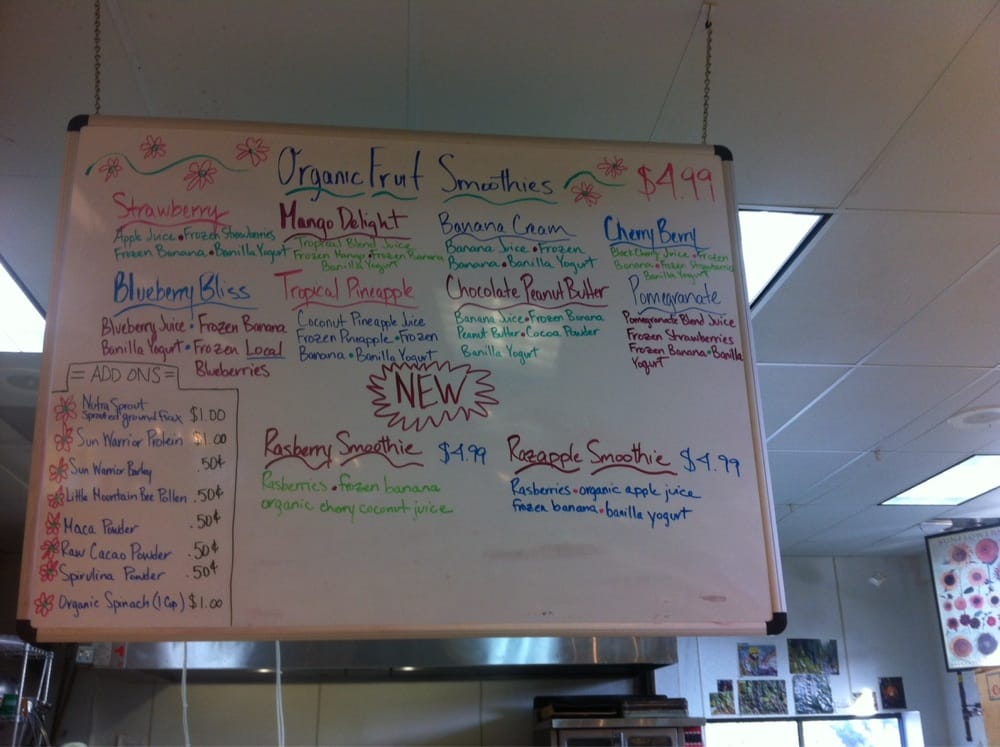 Organic Fruit Smoothies $4.99
Strawberry
Apple Juice • Frozen Strawberries
Frozen Banana • Banilla Yogurt
Mango Delight
Tropical Blend Juice
Frozen Mango • Frozen Banana
Banilla Yogurt
Banana Cream
Banana Juice • Frozen
Banana • Banilla Yogurt
Cherry Berry
Black Cherry Juice • Frozen
Banana • Frozen Strawberries
Banilla Yogurt
Blueberry Bliss
Blueberry Juice • Frozen Banana
Banilla Yogurt • Frozen Local
Blueberries
Tropical Pineapple
Coconut Pineapple Juice
Frozen Pineapple • Frozen
Banana • Banilla Yogurt
Chocolate Peanut Butter
Banana Juice • Frozen Banana
Peanut Butter • Cocoa Powder
Banilla Yogurt
Pomegranate
Pomegranate Blend Juice
Frozen Strawberries
Frozen Banana • Banilla
Yogurt
= ADD ONS =
Nutra Sprout
Sprouted ground flax $1.00
Sun Warrior Protein $1.00
Sun Warrior Barley .50¢
Little Mountain Bee Pollen .50¢
Maca Powder .50¢
Raw Cacao Powder .50¢
Spirulina Powder .50¢
Organic Spinach (1 Cup) $1.00
NEW
Rasberry Smoothie $4.99
Rasberries • frozen banana
organic cherry coconut juice
Razapple Smoothie $4.99
Rasberries • organic apple juice
frozen banana • banilla yogurt
SUNFLOWERS